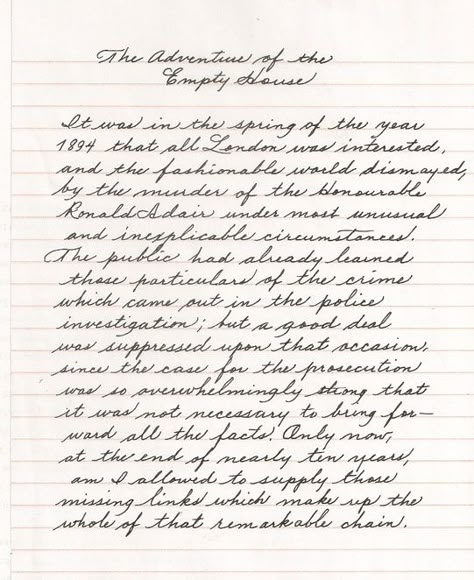 The Adventure of the
Empty House
It was in the spring of the year
1894 that all London was interested,
and the fashionable world dismayed,
by the murder of the Honourable
Ronald Adair under most unusual
and inexplicable circumstances.
The public had already learned
those particulars of the crime
which came out in the police
investigation; but a good deal
was suppressed upon that occasion,
since the case for the prosecution
was so overwhelmingly strong that
it was not necessary to bring for-
ward all the facts. Only now,
at the end of nearly ten years,
am I allowed to supply those
missing links which make up the
whole of that remarkable chain.